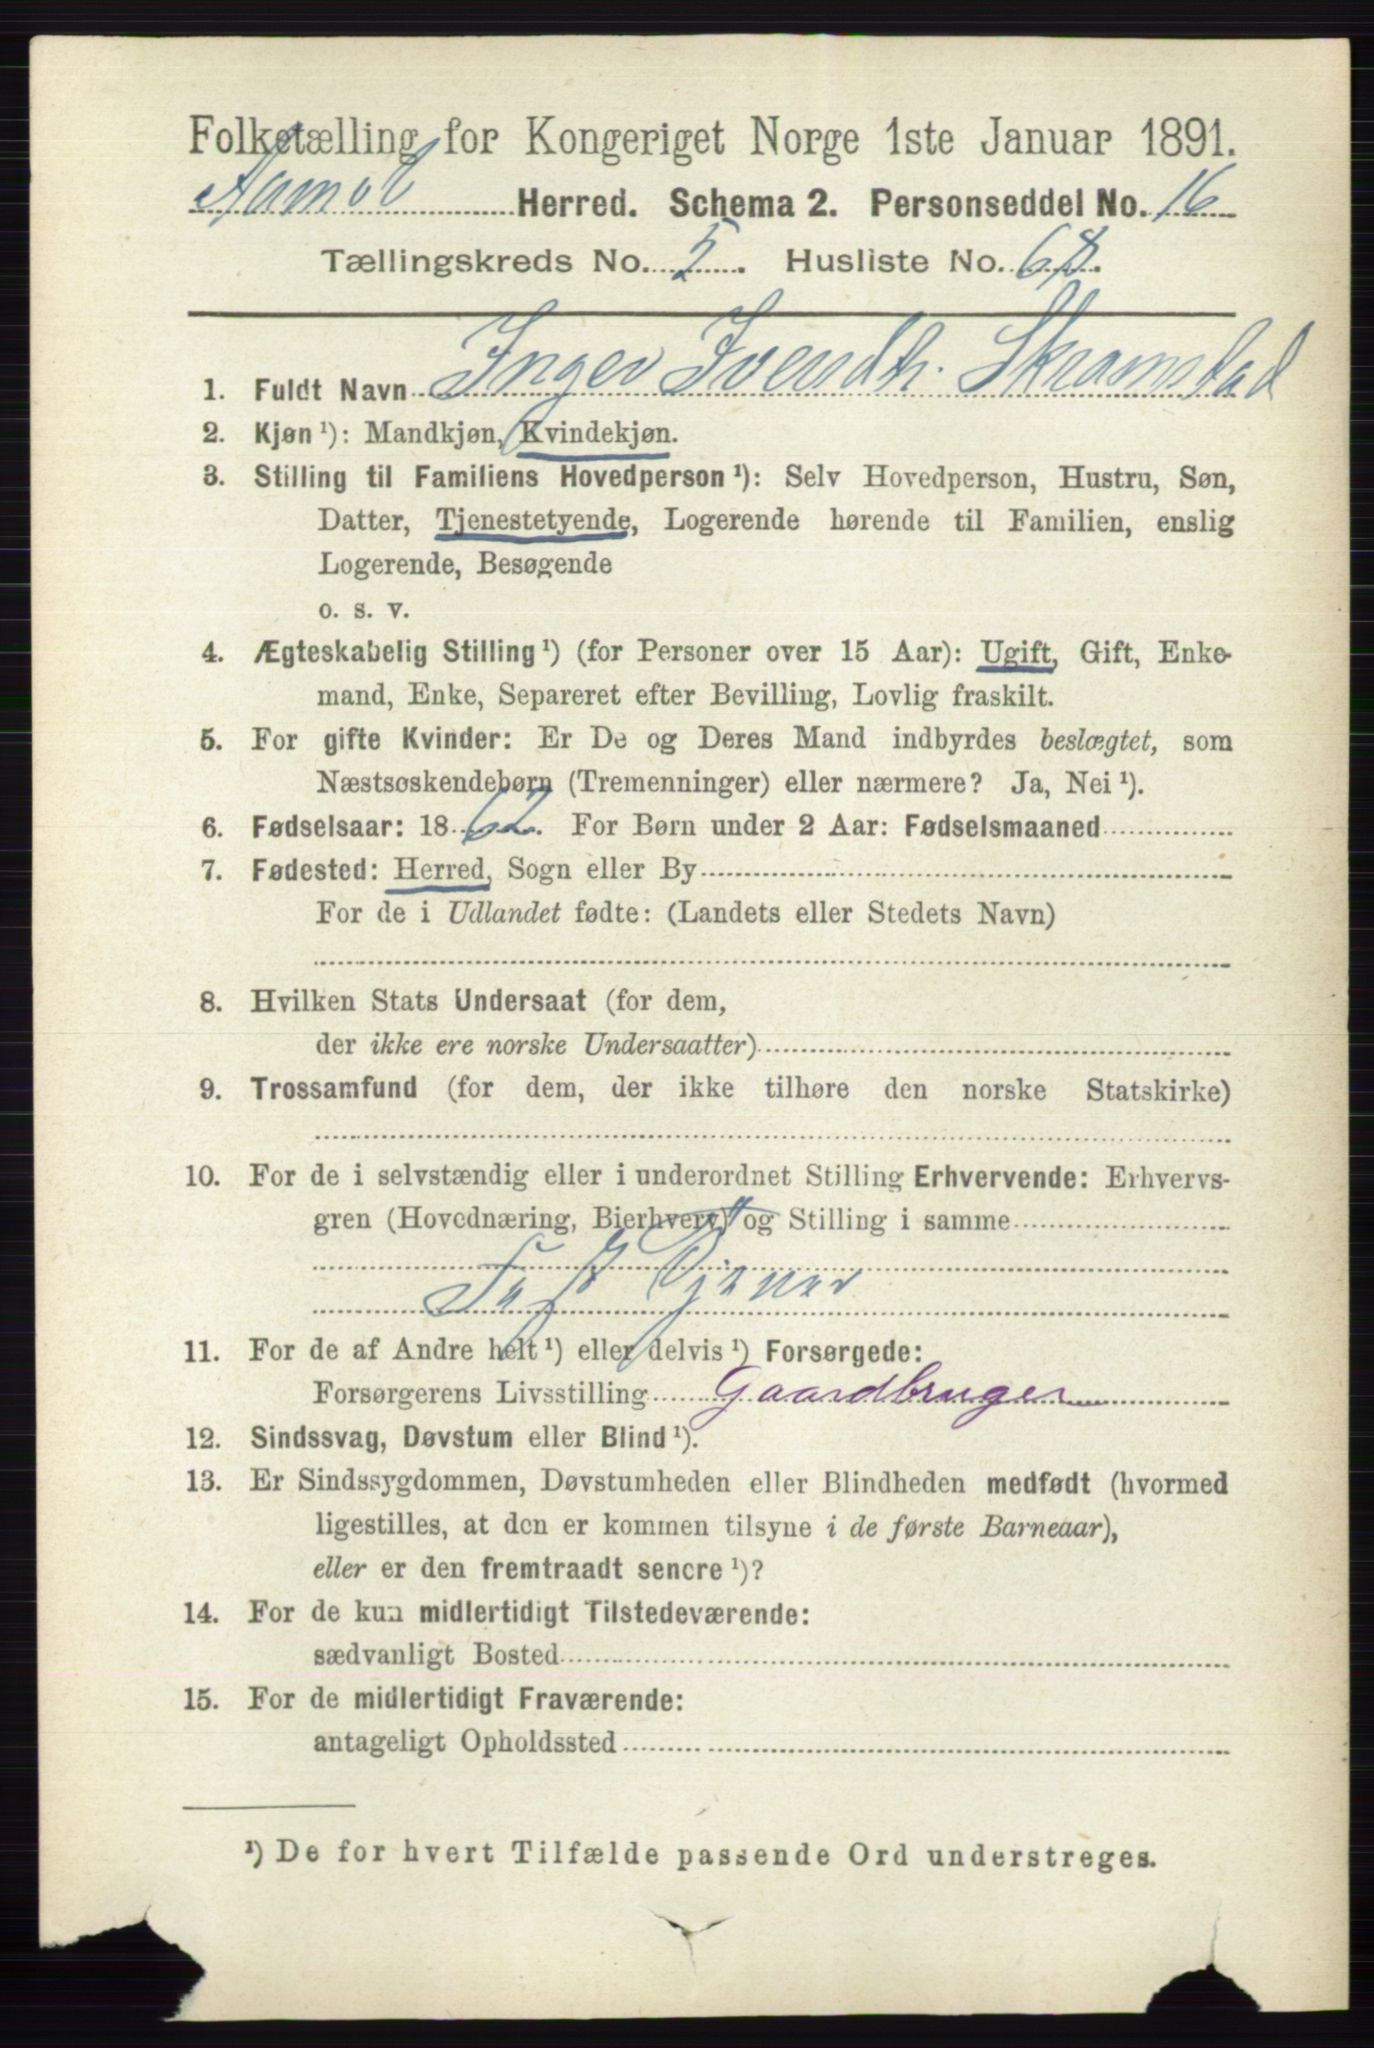 Folketælling for Kongeriget Norge 1ste Januar 1891.
Aamot Herred. Schema 2. Personseddel No. 16
Tællingskreds No. 5. Husliste No.
1. Fuldt Navn Inger Svendtr. Skramstad
2. Kjøn ¹): Mandkjøn, Kvindekjøn.
3. Stilling til Familiens Hovedperson ¹): Selv Hovedperson, Hustru, Søn,
Datter, Tjenestetyende, Logerende hørende til Familien, enslig
Logerende, Besøgende
o. s. v.
4. Ægteskabelig Stilling ¹) (for Personer over 15 Aar): Ugift, Gift, Enke-
mand, Enke, Separeret efter Bevilling, Lovlig fraskilt.
5. For gifte Kvinder: Er De og Deres Mand indbyrdes beslægtet, som
Næstsøskendebørn (Tremenninger) eller nærmere? Ja, Nei ¹).
6. Fødselsaar: 1862. For Børn under 2 Aar: Fødselsmaaned
7. Fødested: Herred, Sogn eller By
For de i Udlandet fødte: (Landets eller Stedets Navn)
8. Hvilken Stats Undersaat (for dem,
der ikke ere norske Undersaatter)
9. Trossamfund (for dem, der ikke tilhøre den norske Statskirke)
10. For de i selvstændig eller i underordnet Stilling Erhvervende: Erhvervs-
gren (Hovednæring, Bierhverv) og Stilling i samme
Fast Tjener
11. For de af Andre helt ¹) eller delvis ¹) Forsørgede:
Forsørgerens Livsstilling Gaardbruger
12. Sindssvag, Døvstum eller Blind ¹).
13. Er Sindssygdommen, Døvstumheden eller Blindheden medfødt (hvormed
ligestilles, at den er kommen tilsyne i de første Barneaar),
eller er den fremtraadt senere ¹)?
14. For de kun midlertidigt Tilstedeværende:
sædvanligt Bosted
15. For de midlertidigt Fraværende:
antageligt Opholdssted
¹) De for hvert Tilfælde passende Ord understreges.